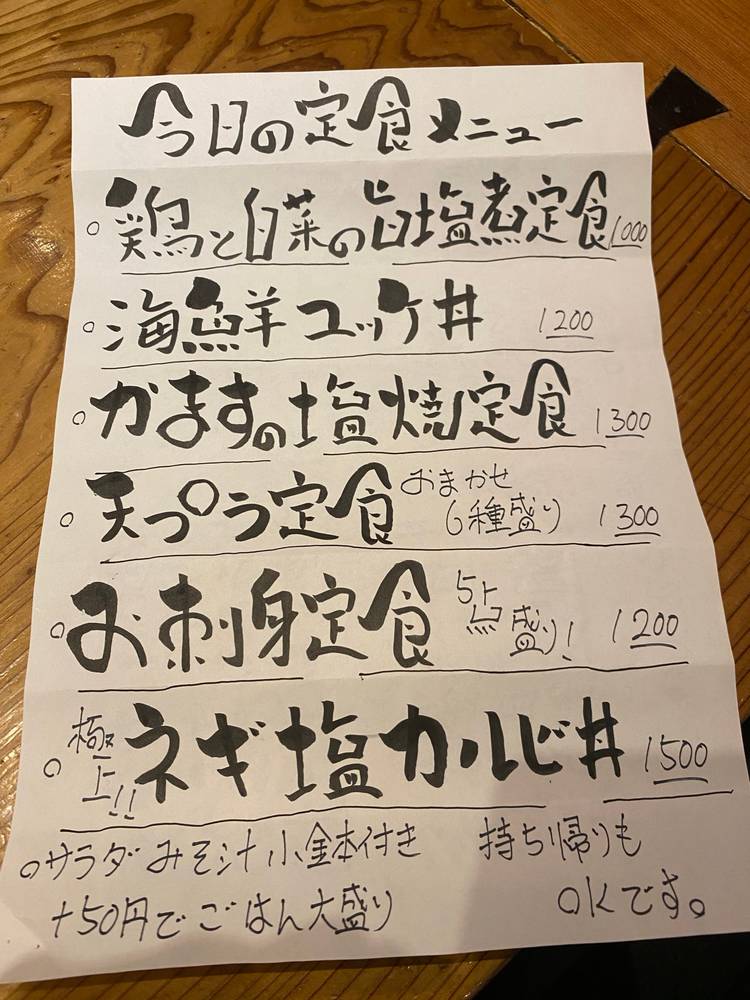 今日の定食メニュー
○鶏と白菜の旨塩煮定食 1000
○海鮮ユッケ丼 1200
○かますの塩焼定食 1300
○天ぷら定食 おまかせ 6種盛り 1300
○お刺身定食 5点盛り! 1200
○極上!!ネギ塩カルビ丼 1500
○サラダみそ汁小鉢付き 持ち帰りも
+50円でごはん大盛り OKです。